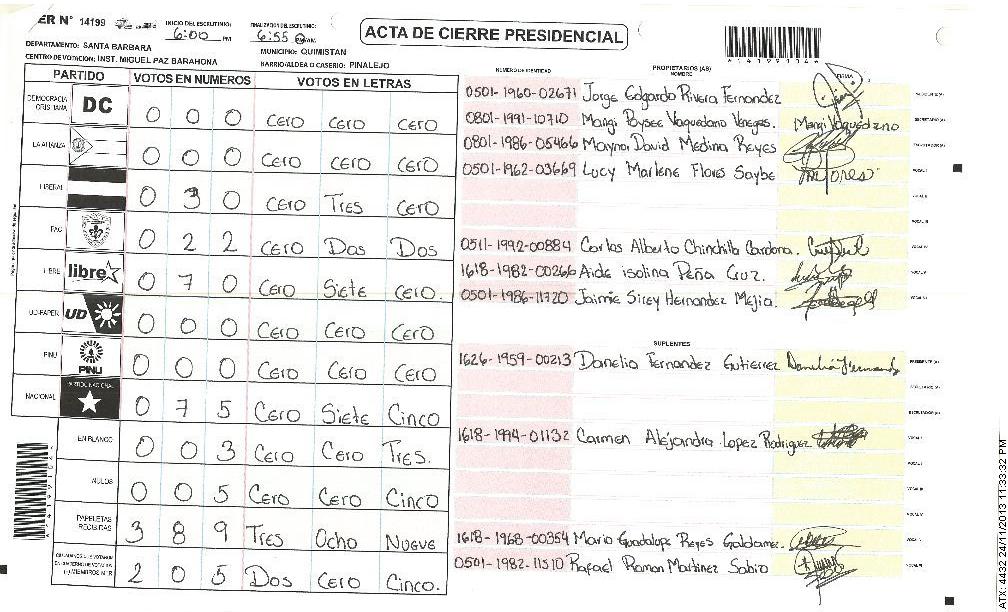 ER N° 14199
INICIO DEL ESCRUTINIO:
6:00 PM
FINALIZACION DEL ESCRUTINIO:
6:55
ACTA DE CIERRE PRESIDENCIAL
DEPARTAMENTO: SANTA BARBARA
MUNICIPIO: QUIMISTAN
CENTRO DE VOTACION: INST. MIGUEL PAZ BARAHONA
BARRIO/ALDEA O CASERIO: PINALEJO
PARTIDO VOTOS EN NUMEROS VOTOS EN LETRAS
DEMOCRACIA CRISTIANA DC 0 0 0 CERO CERO CERO
LA ALIANZA 0 0 0 CERO CERO CERO
LIBERAL 0 3 0 CERO TRES CERO
PAC 0 2 2 CERO DOS DOS
LIBRE libre 0 7 0 CERO SIETE CERO.
UD-FAPER UD 0 0 0 CERO CERO CERO
PINU PINU 0 0 0 CERO CERO CERO
NACIONAL PARTIDO NACIONAL 0 7 5 CERO SIETE CINCO
EN BLANCO 0 0 3 CERO CERO TRES.
NULOS 0 0 5 CERO CERO CINCO
PAPELETAS RECIBIDAS 3 8 9 TRES OCHO NUEVE
2 0 5 DOS CERO CINCO.
NUMERO DE IDENTIDAD PROPIETARIOS (AS) NOMBRE FIRMA
0501-1960-02671 Jorge Edgardo Rivera Fernandez
0801-1991-10710 Mangi Poysee Vaquedano Venegas. Mangi Vaquedano
0801-1986-05466 Maynor David Medina Reyes
0501-1962-03669 Lucy Marlene Flores Saybe
0511-1992-00884 Carlos Alberto Chinchilla Cardona.
1618-1982-00266 Aide isolina Peña Cruz.
0501-1986-11720 Jaimie Sirey Hernandez Mejia.
SUPLENTES
1626-1959-00213 Danelia Fernandez Gutierrez Danelia Fernandez
1618-1994-01132 Carmen Alejandra Lopez Rodriguez
1618-1968-00354 Mario Guadalope Reyes Galdamez
0501-1982-11510 Rafael Ramon Martinez Sabio
ATX: 4432 24/11/2013 11:33:32 PM